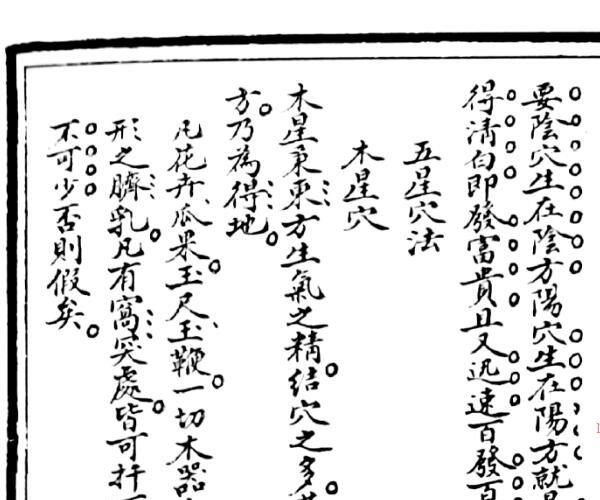 要陰穴生在陰方陽穴生在陽方就
得清白即發富貴且又迅速百發百
五星穴法
木星穴
木星秉東方生氣之精結穴之多
方乃為得地
凡花卉瓜果玉尺玉鞭一切木器
形之臍乳凡有窩突處皆可扦
不可少否則假矣